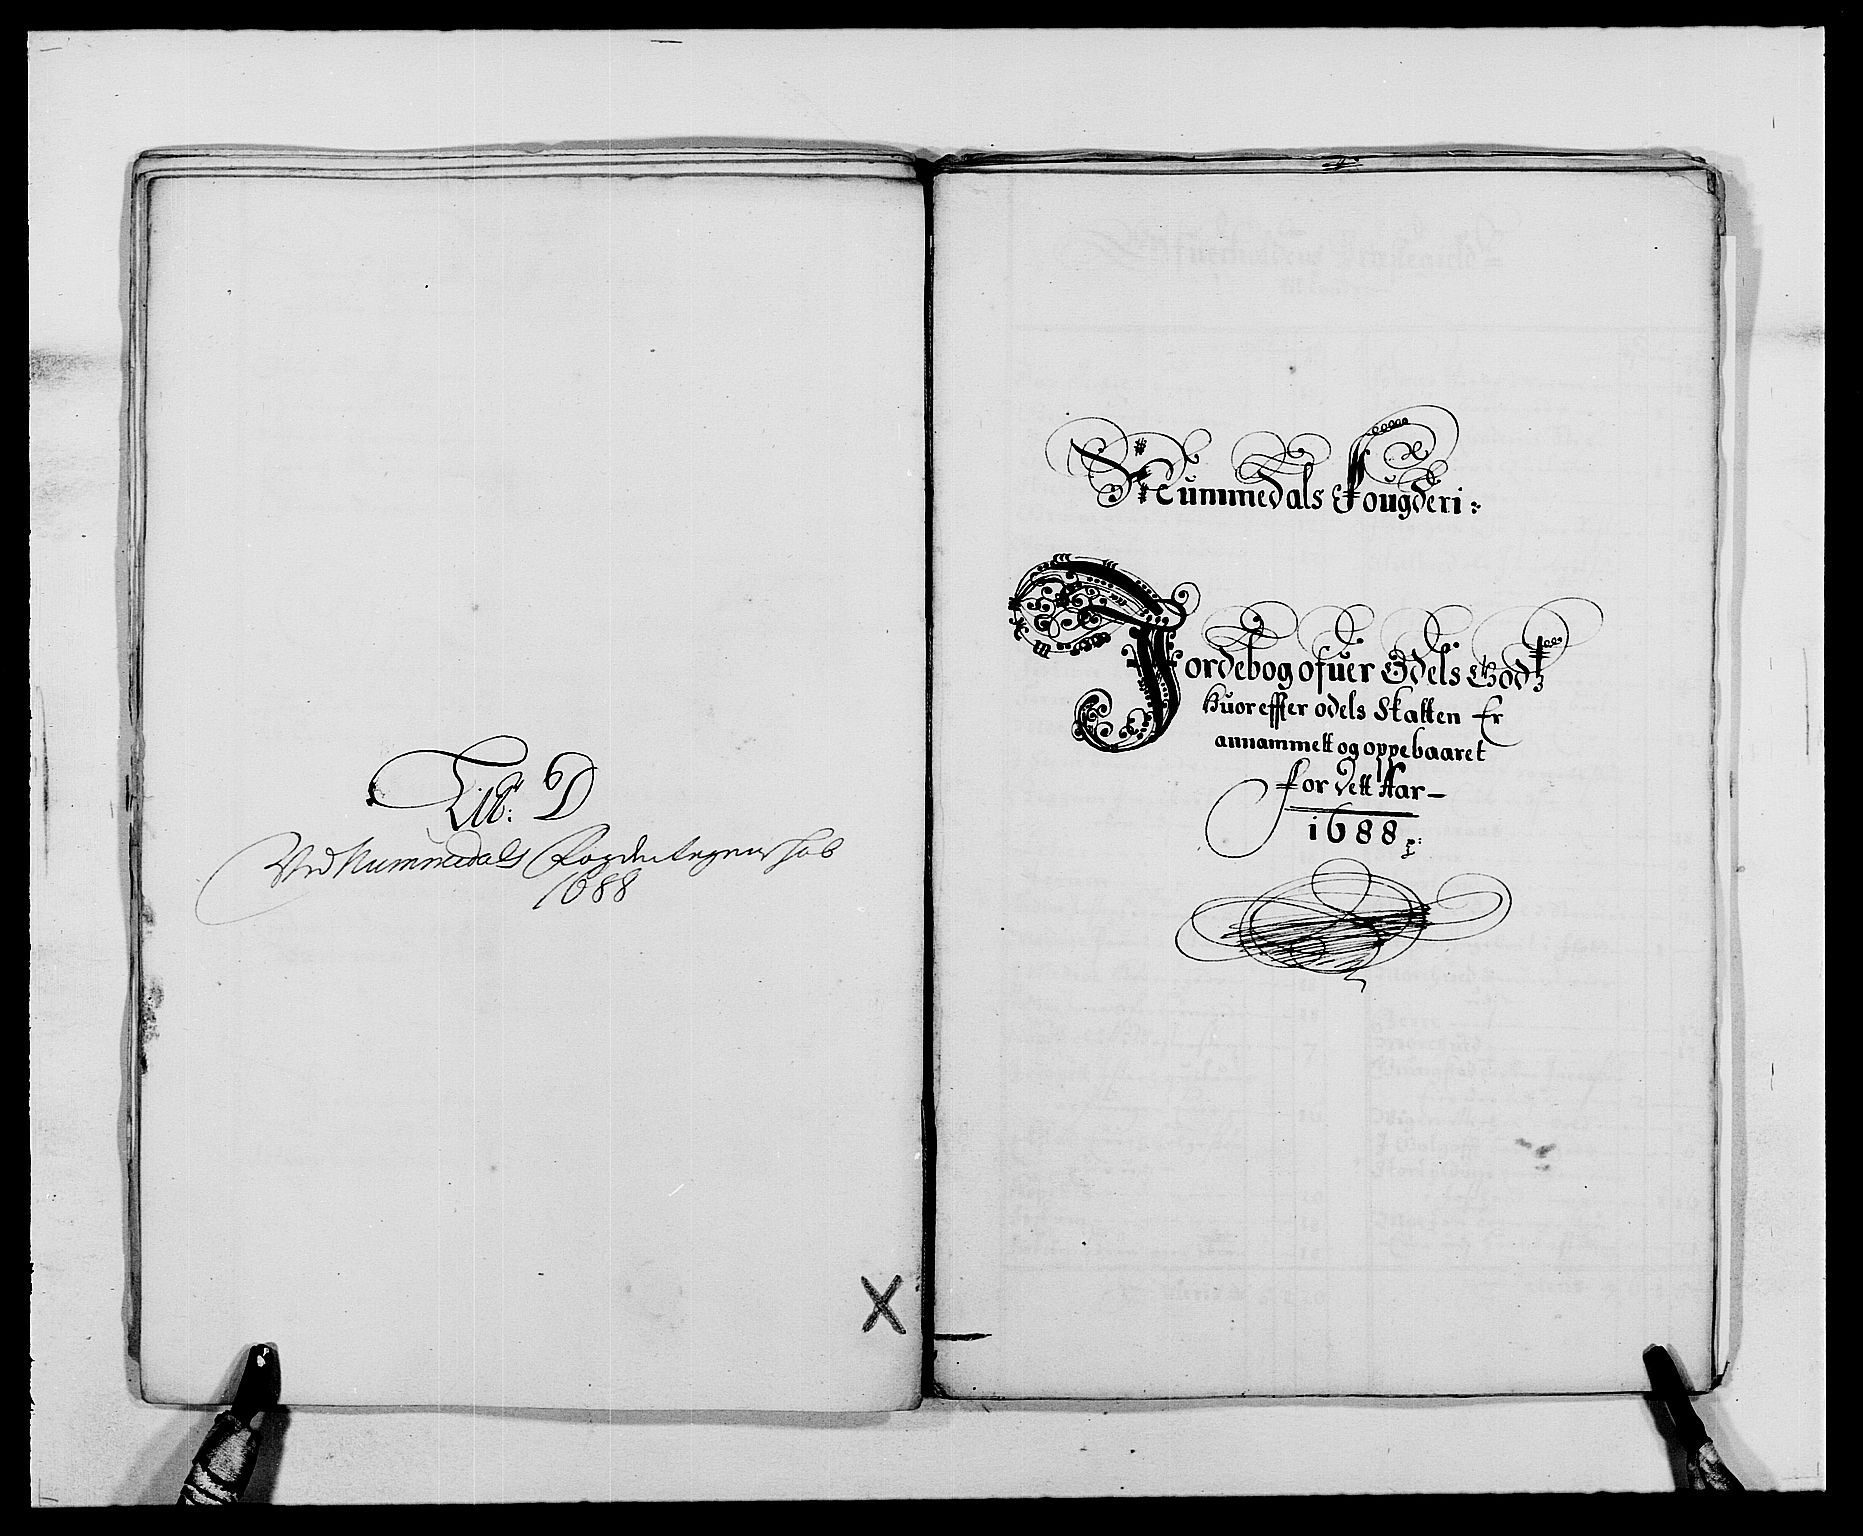 Lit: D
Ved Nummedals Fogderegenschab
1688
Nummedals Fougderi:
Jordebog ofuer Odels Godz
Huoreffter odels Skatten Er
annammett og oppebaaret
for dett Aar—
1688